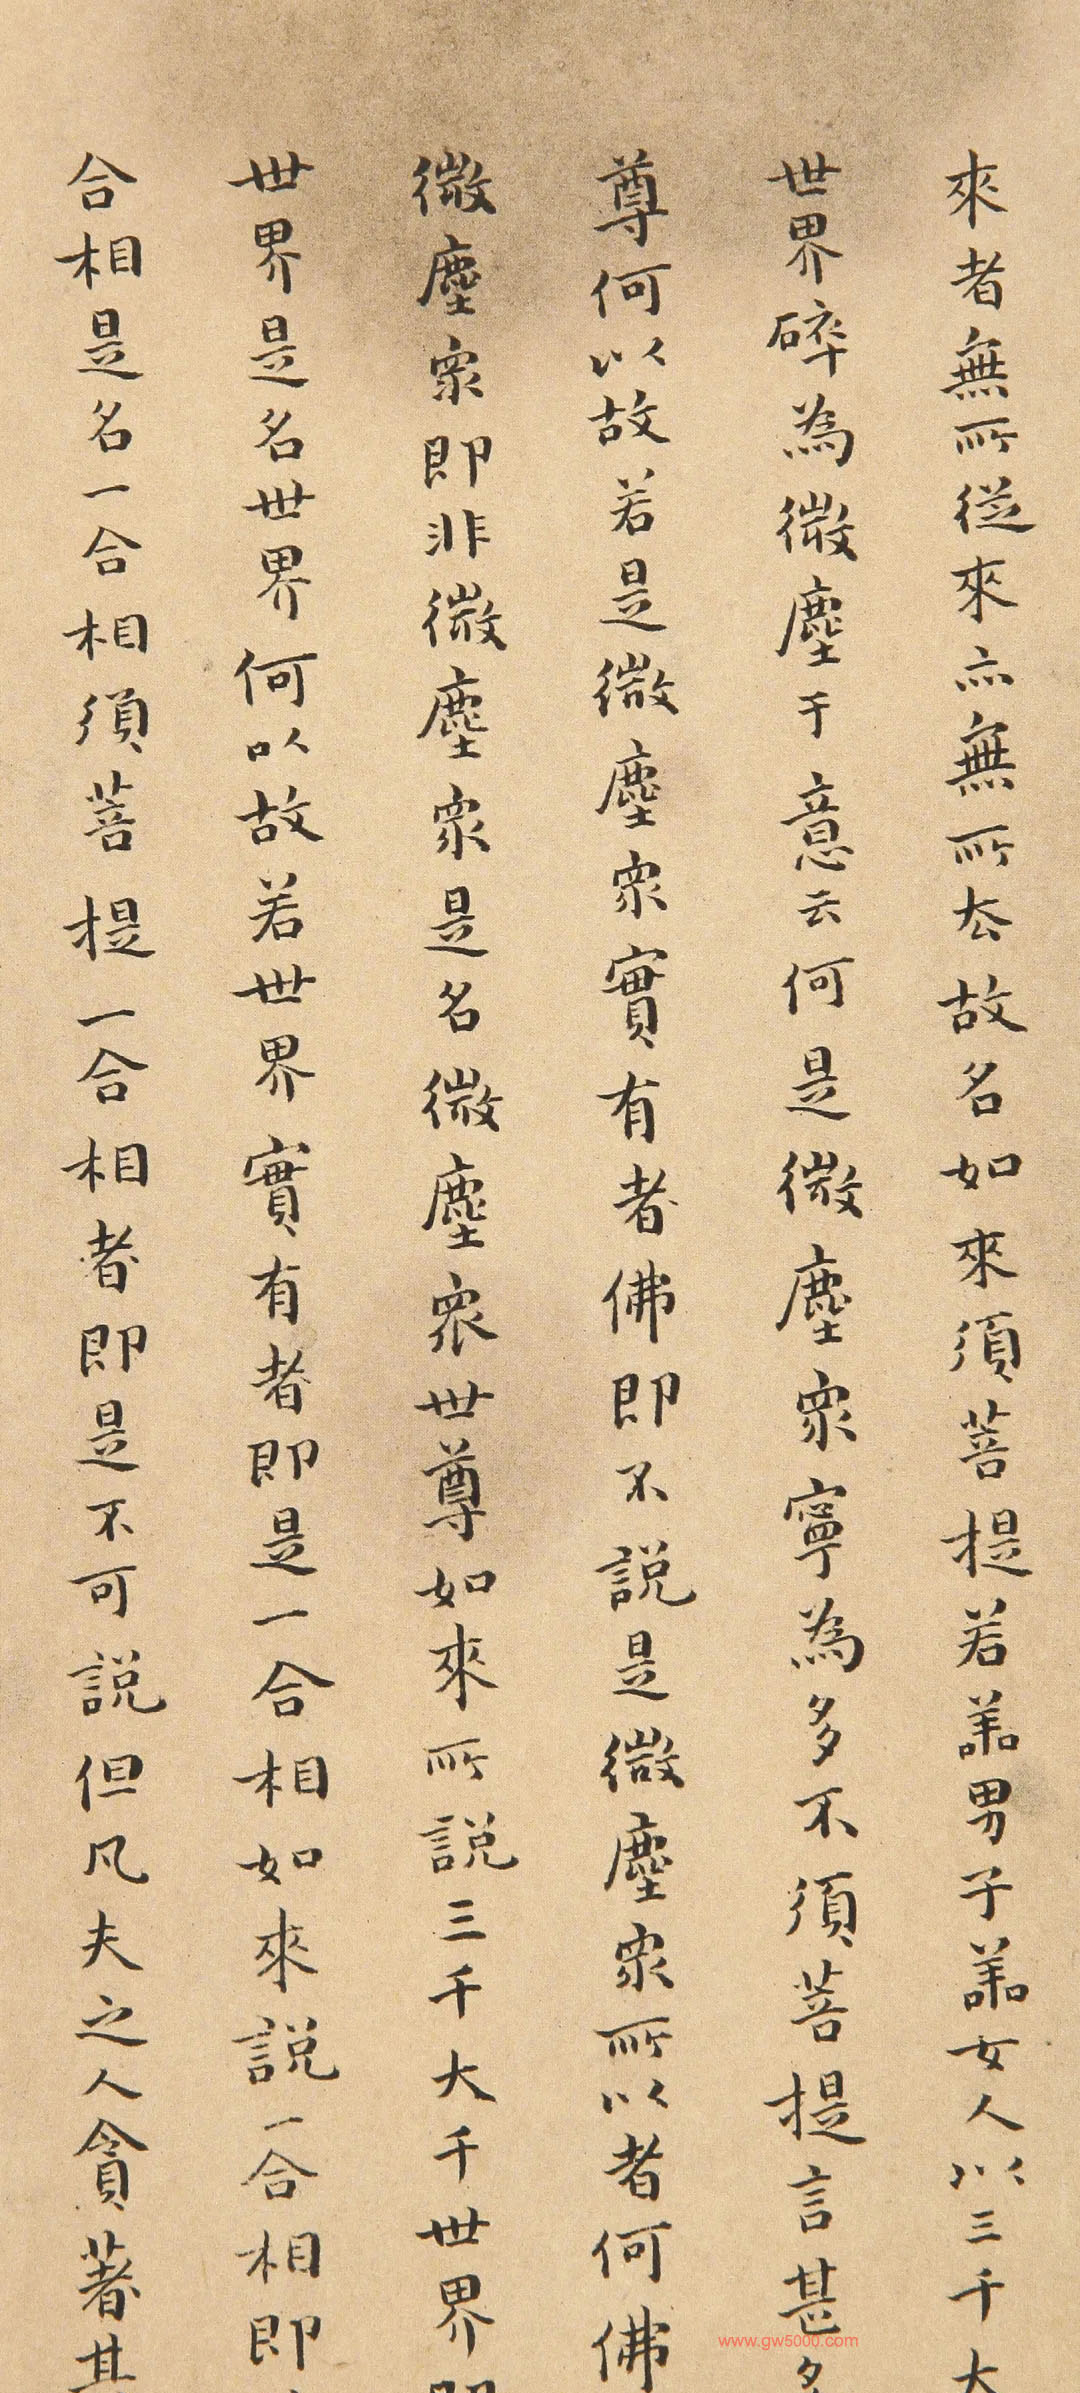 來者無所從來亦無所去故名如來須菩提若善男子善女人以三千大
世界碎為微塵于意云何是微塵眾寧為多不須菩提言甚多
尊何以故若是微塵眾實有者佛即不說是微塵眾所以者何佛
微塵眾即非微塵眾是名微塵眾世尊如來所說三千大千世界
世界是名世界何以故若世界實有者即是一合相如來說一合相即
合相是名一合相須菩提一合相者即是不可說但凡夫之人貪著其
www.gw5000.com